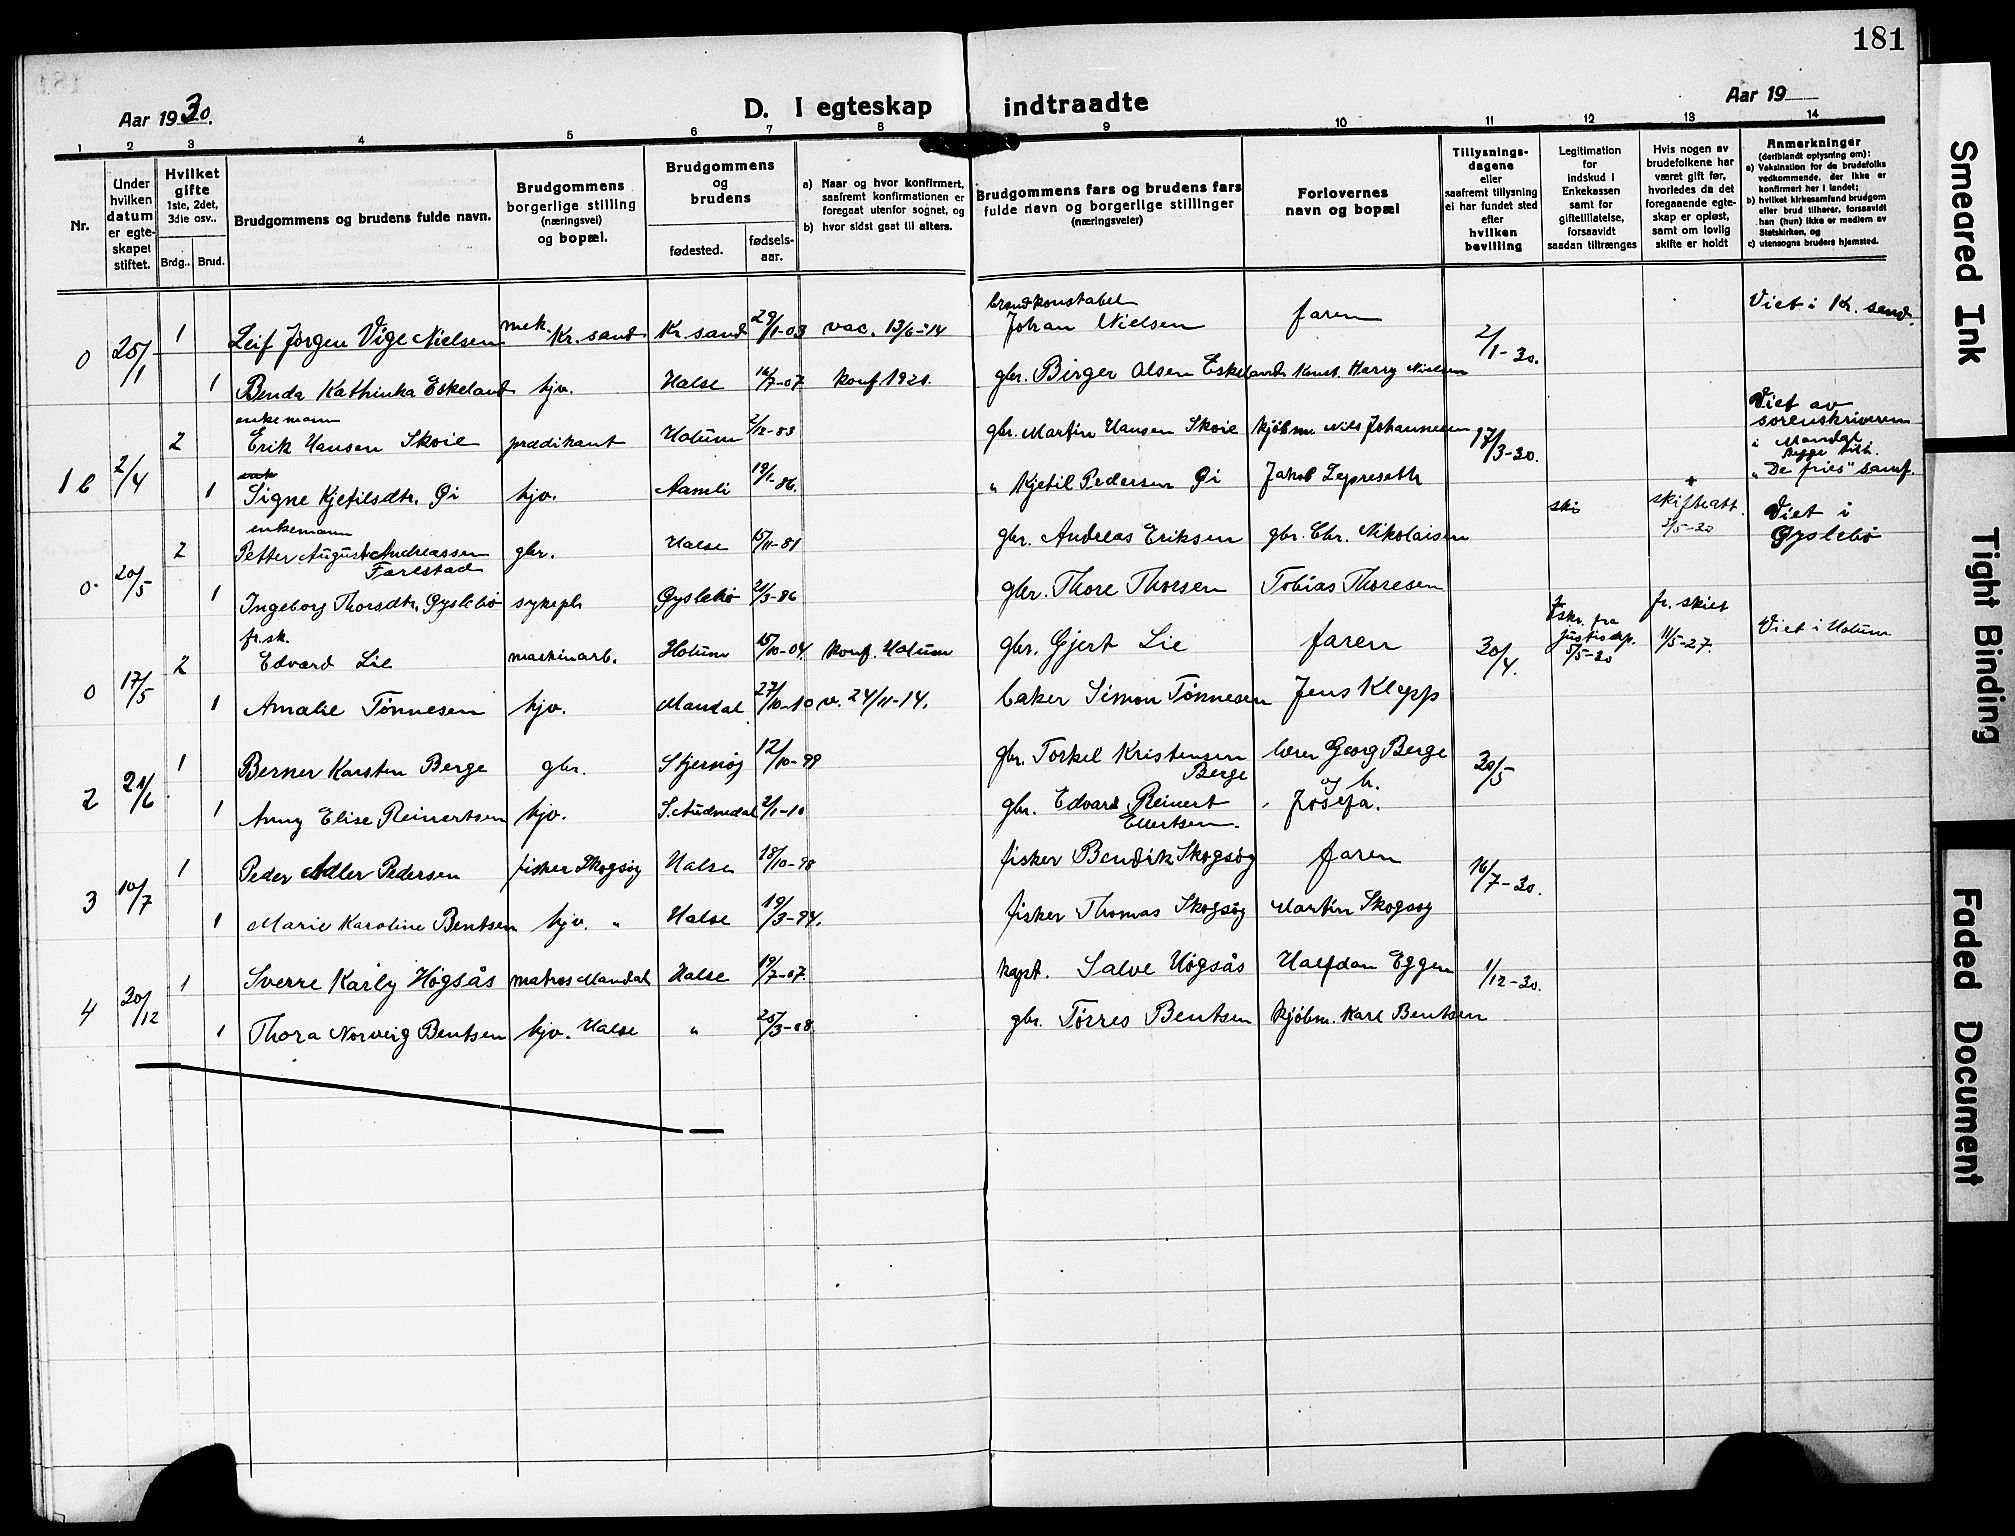 181
Aar 1930.
D. I egteskap indtraadte
Aar 19
1 2 3 4 5 6 7 8 9 10 11 12 13 14
Nr.
Under hvilken datum er egteskapet stiftet.
Hvilket gifte 1ste, 2det, 3die osv..
Brdg.. Brud.
Brudgommens og brudens fulde navn.
Brudgommens borgerlige stilling (næringsvei) og bopæl.
Brudgommens og brudens
fødested. fødsels-aar.
a) Naar og hvor konfirmert, saafremt konfirmationen er foregaat utenfor sognet, og
b) hvor sidst gaat til alters.
Brudgommens fars og brudens fars fulde navn og borgerlige stillinger (næringsveier)
Forlovernes navn og bopæl
Tillysnings-dagene eller saafremt tillysning ei har fundet sted efter hvilken bevilling
Legitimation for indskud i Enkekassen samt for giftetillatelse, forsaavidt saadan tiltrænges
Hvis nogen av brudefolkene har været gift før, hvorledes da det foregaaende egteskap er opløst, samt om lovlig skifte er holdt
Anmerkninger (deriblandt oplysning om):
a) Vaksination for de brudefolks vedkommende, der ikke er konfirmert her i landet;
b) hvilket kirkesamfund brudgom eller brud tilhører, forsaavidt han (hun) ikke er medlem av Statskirken, og
c) utensogns bruders hjemsted.
0 25/1 1 Leif Jørgen Vige Nielsen mek. Kr.sand Kr.sand 29/1-03 vac. 13/6-14 brandkonstabel Johan Nielsen faren 2/1-30. Viet i Kr.sand.
1 Benda Kathinka Eskeland hjv. Halse 16/7-07 konf. 1921. gbr. Birger Olsen Eskeland Harry Nielsen
1 b 2/4 2 enkemann Erik Hansen Skoie prædikant Holum 2/12-83 gbr. Martin Hansen Skoie kjøbm. Nils Johannesen 17/3-30. Viet av sorenskriveren i Mandal. Begge tilh. "De fries" samf.
1 Signe Kjetilsdtr. Øi hjv. Aamli 19/1-86. " Kjetil Pedersen Øi Jakob
0 20/5 2 enkemann Petter August Andreassen Farestad gbr. Halse 15/11-81 gbr. Andreas Eriksen gbr. Chr. Nikolaisen skifteatt. 3/5-30 Viet i Øyslebø
1 Ingeborg Thorsdtr. Øyslebø sykepl. Øyslebø 21/3-86 gbr. Thore Thorsen Tobias Thoresen
0 17/5 2 fr.sk. Edvard Lie maskinarb. Holum 15/10-04 konf. Holum gbr. Gjert Lie faren 30/4. skr. fra justisdep. 5/5-30 fr. skilt 11/5-27. Viet i Holum
1 Amalie Tønnesen hjv. Mandal 27/10-10 v. 24/11-14. baker Simon Tønnesen Jens Klepp
2 21/6 1 Berner Karsten Berge gbr. Skjernøy 12/10-99 gbr. Torkel Kristensen Berge lærer Georg Berge og h. Josefa. 30/5
1 Anny Elise Reinertsen hjv. S. Audnedal 2/1-10 gbr. Edvard Reinert Ellertsen.
3 10/7 1 Peder Adler Pedersen fisker Skogsøy Halse 18/10-98 fisker Bendik Skogsøy faren 16/7-30.
1 Marie Karoline Bentsen hjv. " Halse 19/3-94. fisker Thomas Skogsøy Martin Skogsøy
4 30/12 1 Sverre Karly Høgsås matros Mandal Halse 19/7-07. kapt. Salve Høgsås Halfdan Eggen 1/12-30.
1 Thora Norveig Bentsen hjv. Halse " 25/3-08 gbr. Tørres Bentsen kjøbm. Karl Bentsen
Smeared Ink
Tight Binding
Faded Document